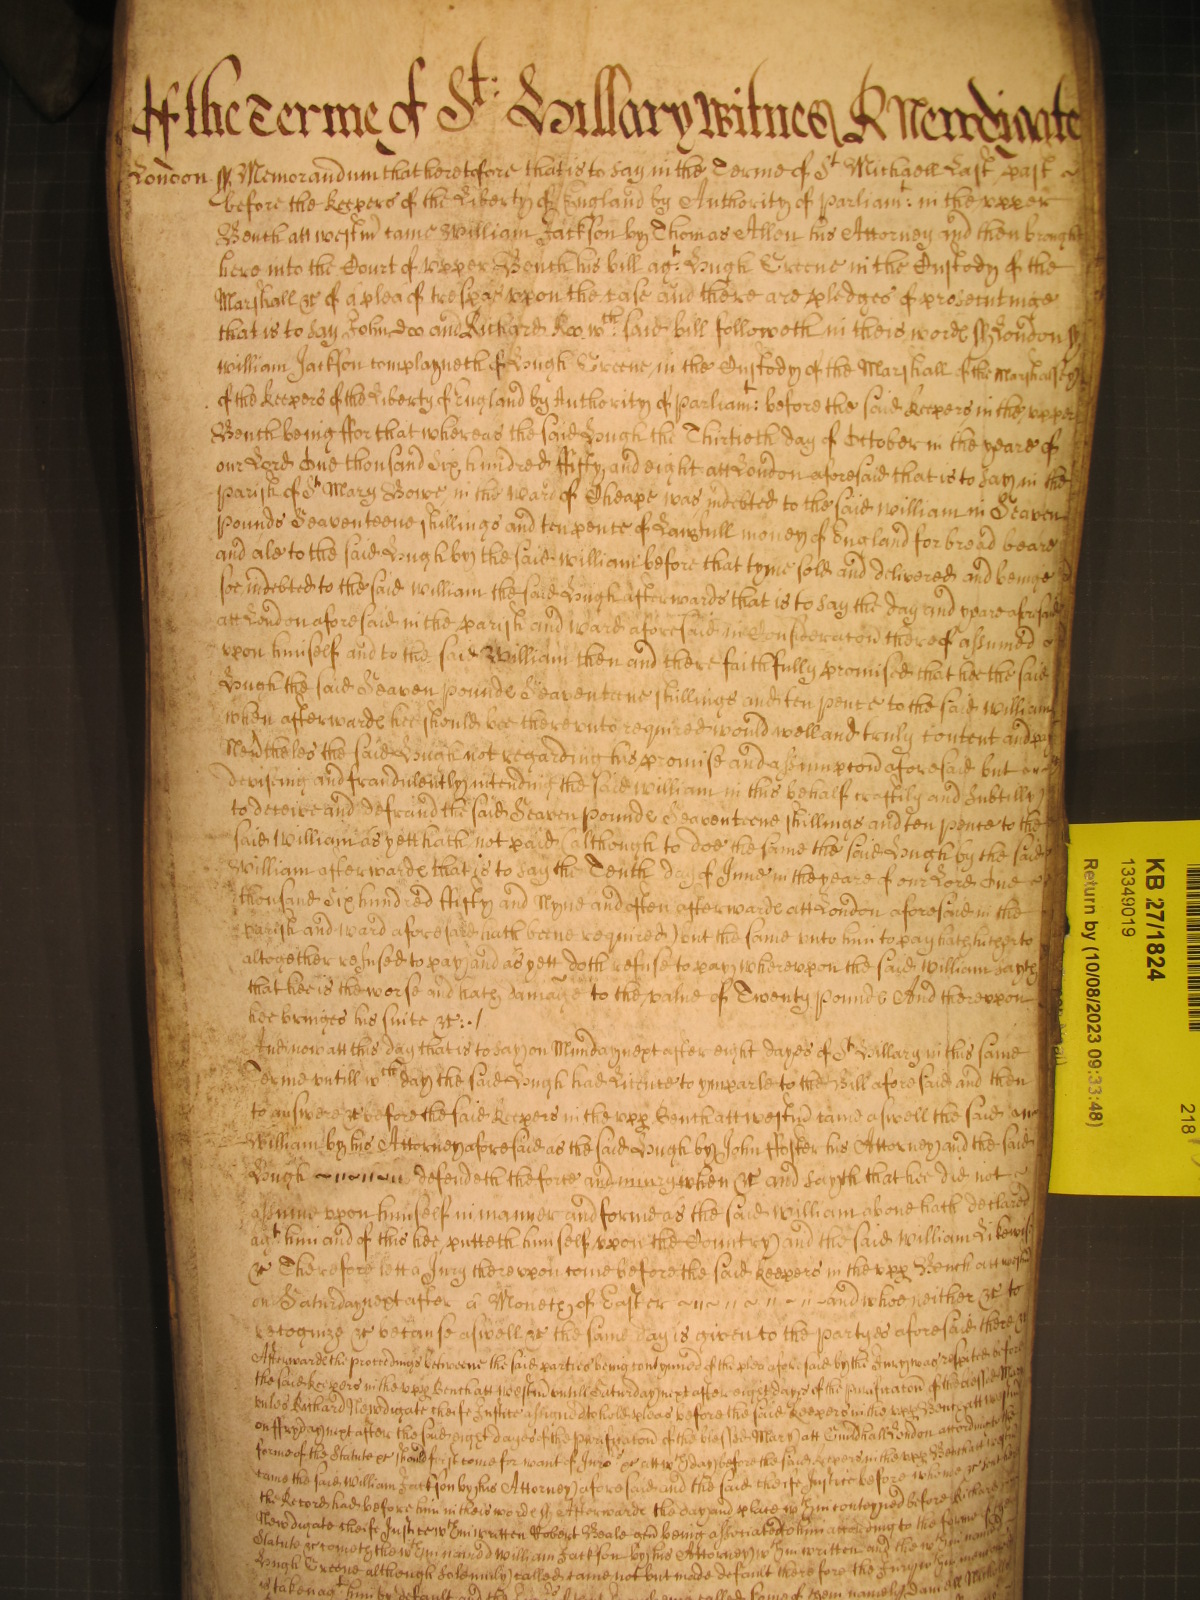 Of the Terme of St: Hillary Witnes R Newdigate
London ss Memorandum that heretofore that is to say in the Terme of St Michaell Last past
before the Keepers of the Liberty of England by Authority of Parliamt: in the upper
Bench att Westm came William Jackson by Thomas Allen his Attorney and then brought
here into the Court of upper Bench his bill agt: Hugh Greene in the Custody of the
Marshall &c of a plea of trespas uppon the case and there are pledges of prosecutinge
that is to say John Doo and Richard Roo wch: said bill followeth in theis words ss London ss
William Jackson complayneth of Hugh Greene in the Custody of the Marshall of the Marshalsey
of the Keepers of the Liberty of England by Authority of Parliamt: before the said Keepers in the upper
Bench being ffor that whereas the said Hugh the Thirtieth day of October in the yeare of
our Lord One thousand Six hundred ffifty and eight att London aforesaid that is to say in the
parish of St Mary Bowe in the ward of Cheape was indebted to the said William in Seaven
pounds Seaventeene shillings and ten pence of Lawfull money of England for bread beare
and ale to the said Hugh by the said William before that tyme sold and delivered and beinge
soe indebted to the said William the said Hugh afterwards that is to say the day and yeare aforesaid
att London aforesaid in the parish and ward aforesaid in Consideracon thereof assumed
upon himself and to the said William then and there faithfully promised that hee the said
Hugh the said Seaven pounds Seaventeene shillings and ten pence to the said William
when afterwards hee should bee thereunto required would well and truly content and pay
Nevertheles the said Hugh not regarding his promise and assumpcon aforesaid but
devising and fraudulently intending the said William in this behalf craftily and Subtilly
to deceive and defraud the said Seaven pounds Seaventeene shillings and ten pence to the
said William as yett hath not paid (although to doe the same the said Hugh by the said
William afterwards that is to say the Tenth day of June in the yeare of our Lord One
thousand Six hundred ffifty and Nyne and often afterwards att London aforesaid in the
parish and ward aforesaid hath beene required) but the same unto him to pay hath hitherto
altogether refused to pay and as yett doth refuse to pay whereupon the said William sayth
that hee is the worse and hath damage to the value of Twenty pounds And thereupon
hee bringes his suite &c:
And now att this day that is to say on Munday next after eight dayes of St Hillary in this same
Terme untill wch day the said Hugh had Licence to ymparle to the Bill aforesaid and then
to answere &c before the said Keepers in the upp Bench att Westm came aswell the said
William by his Attorney aforesaid as the said Hugh by John ffoster his Attorney and the said
Hugh defendeth the force and iniury when &c and sayth that hee did not
assume upon himself in manner and forme as the said William above hath declared
agt him and of this hee putteth himself upon the Country and the said William Likewise
&c Therefore lett a Jury thereupon come before the said Keepers in the upp Bench att Westm
on Saturday next after a Moneth of Easter and whoe neither &c to
recognize &c because aswell &c the same day is given to the partyes aforesaid there &c
Afterwards the proceedings betweene the said parties being contynued of the plea aforesaid by the Jury was respited before
the said Keepers in the upp Bench att Westm untill Saturday next after eight dayes of the purificacon of the blessed Mary
unles Richard Newdigate cheife Justice assigned to hold pleas before the said Keepers in the upp Bench att Westm
on ffryday next after the said eight dayes of the purificacon of the blessed Mary att Guildhall London according to the
forme of the Statute &c should first come for want of Juro &c att wch day before the said Keepers in the upp Bench att Westm
came the said William Jackson by his Attorney aforesaid and the said cheife Justice before whome &c
the Record had before him in theis words ss Afterwards the day and place wthin conteyned before Richard
Newdigate cheife Justice wthin written Robert Beale gent being associated to him according to the forme of the
Statute &c cometh the wthin named William Jackson by his Attorney wthin written and the wthin named
Hugh Greene although Solemnly called came not but made default therefore the Jury wthin mentioned
is taken agt him by default and the
KB 27/1824
13349019
Return by (10/08/2023 09:33:48)
218